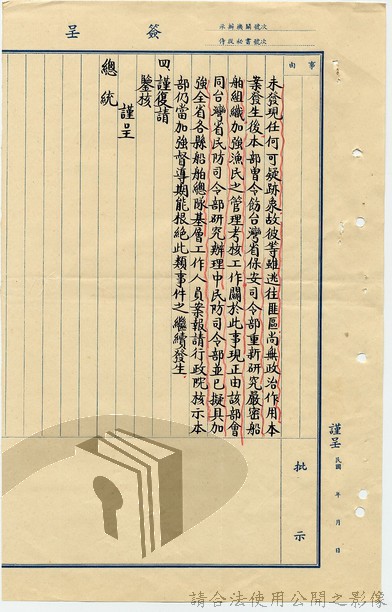 簽呈
承辦機關號次
侍從祕書號次
事由
未發現任何可疑跡象故彼等雖逃往匪區尚無政治作用本
案發生後本部曾令飭台灣省保安司令部重新研究嚴密船
舶組織加強漁民之管理考核工作關於此事現正由該部會
同台灣省民防司令部研究辦理中民防司令部並已擬具加
強全省各縣船舶總隊基層工作人員案報請行政院核示本
部仍當加強督導期能根絕此類事件之繼續發生
四謹復請
鑒核
謹呈
總統
批示
謹呈
民國 年 月 日
請合法使用公開之影像